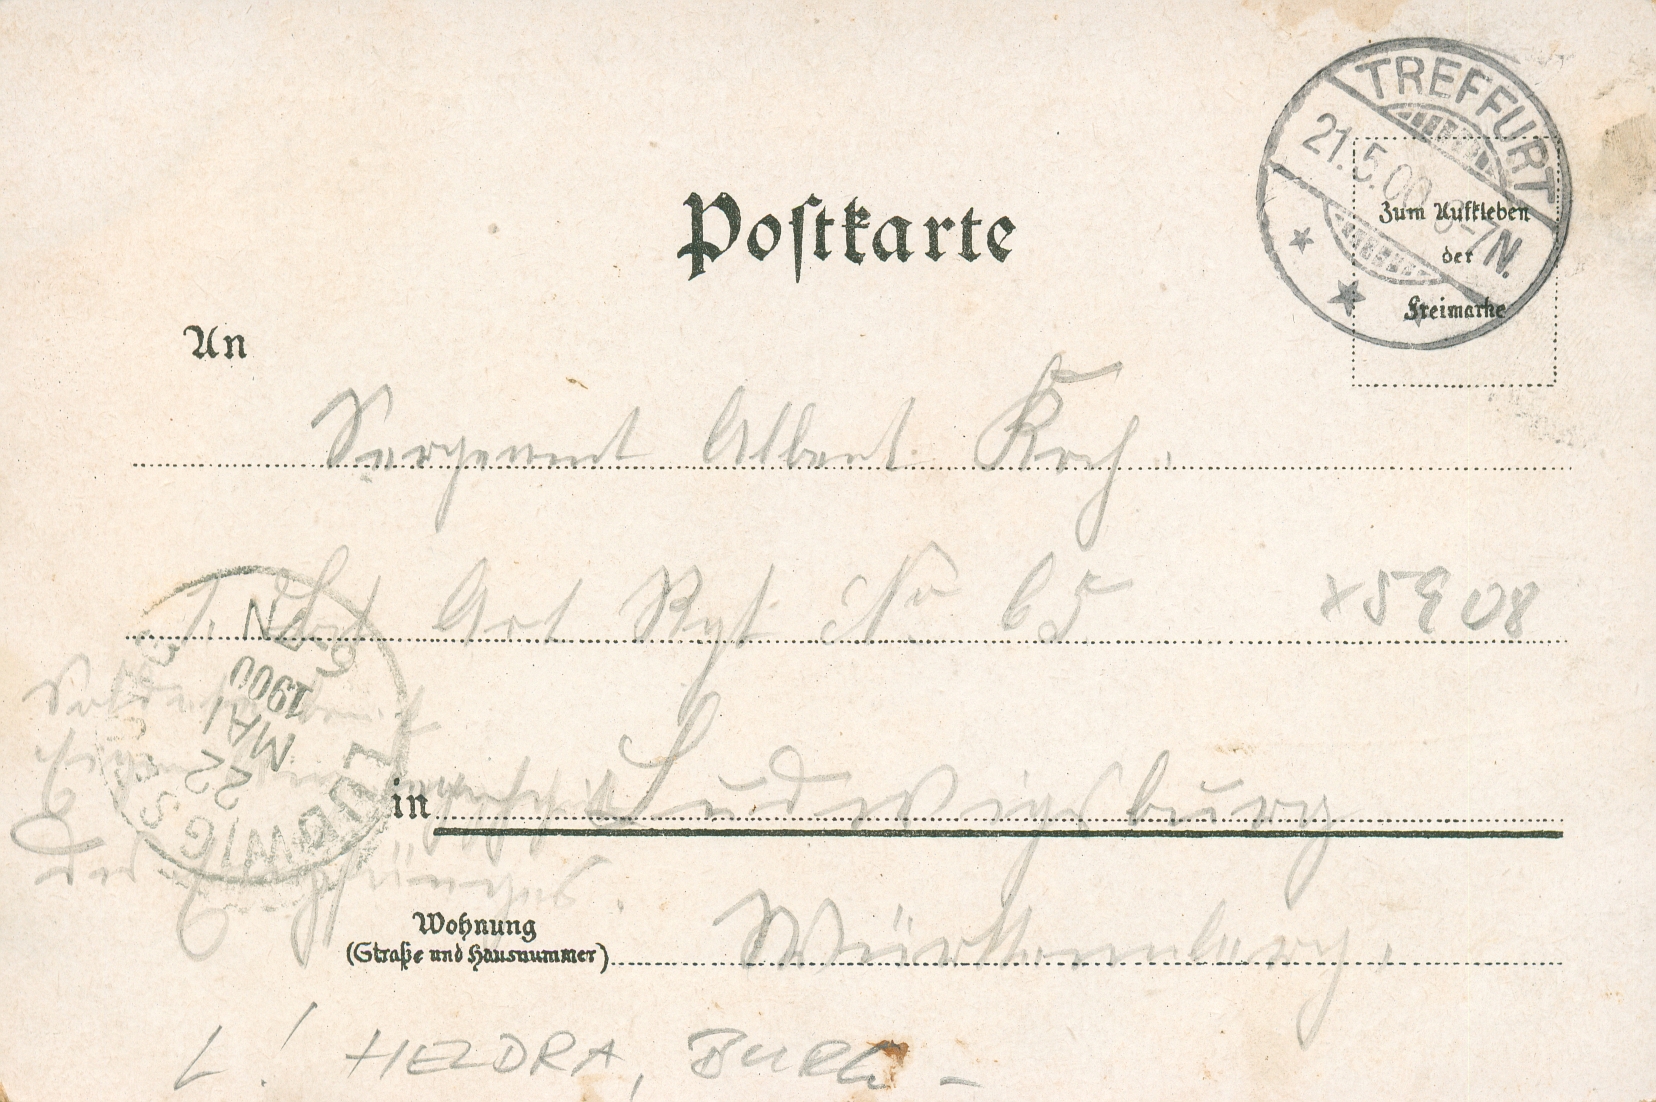 Postkarte
TREFFURT
21.5.00 6-7N.
Zum Aufkleben
der
Freimarke
An
Sergeant Albert Koch.
Art Rgt No 65
x5908
N
1900
MAI
22
LUDWIGSBURG
Soldatenbrief.
Eigene Angelegenheit
des Empfängers.
in Ludwigsburg
Wohnung
(Straße und Hausnummer)
Württemberg.
L! HELDRA, BURG -